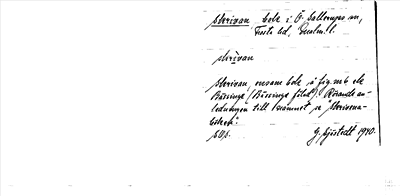 Skrivan, bok i Ö. Sallerups sn,
Frosta hd, Malm. l.
skrivan
Skrivan, ensam bok å fig. nr 6 ek
Bössinge (Bössinge fälad). Rörande an-
ledningen till namnet se "Skrivna-
böken".
G. Sjöstedt 1940.